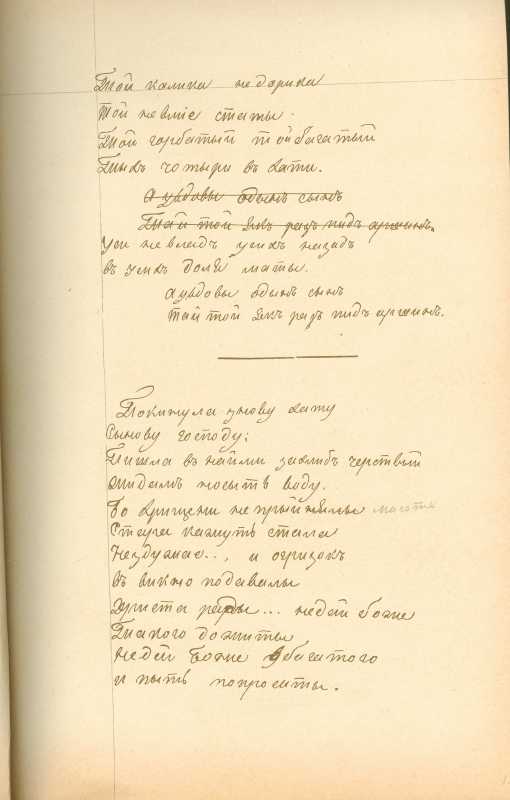 Той калика недорика
той невміе статы.
Той горбатый той багатый
Тыхъ чотыри въ хати.
А у вдовы одынъ сынъ
Тай той якъ разъ пидъ аршинъ.
Уси невлядъ усихъ назадъ
въ усихъ доля маты.
а у вдовы одынъ сынъ
тай той якъ разъ пидъ аршинъ.
Покинула знову хату
Сынову господу;
Пишла въ найми за хлибъ черствій
жидамъ носыть воду.
Бо хрищени не прыйнялы
Стара кажуть стала
Нездужае.., и огризокъ
въ викно подавалы
Христа рады... недай Боже
Такого дожиты
недай Боже убагатого
и пыть попросыты.